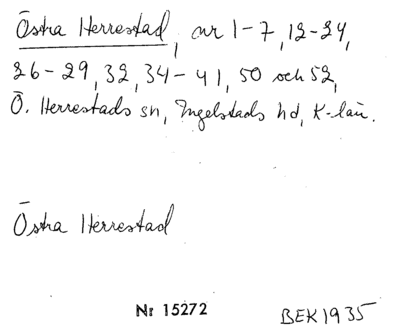 Östra Herrestad, nr 1-7, 12-24,
26-29, 32, 34-41, 50 och 52,
Ö. Herrestads sn, Ingelstads hd, K-län.
Östra Herrestad
Nr 15272
BEK 1935